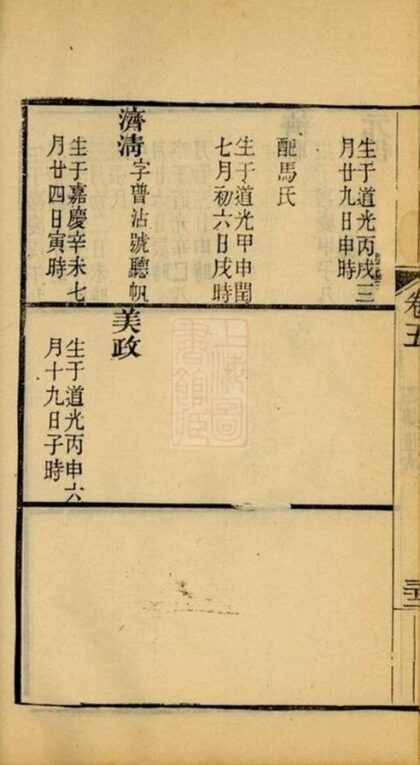 生于道光丙戌三
月廿九日申時
配馬氏
生于道光甲申閏
七月初六日戌時
濟清 字曹沾號聽帆
生于嘉慶辛未七
月廿四日寅時
美政
生于道光丙申六
月十九日子時
卷五
上海圖書館藏